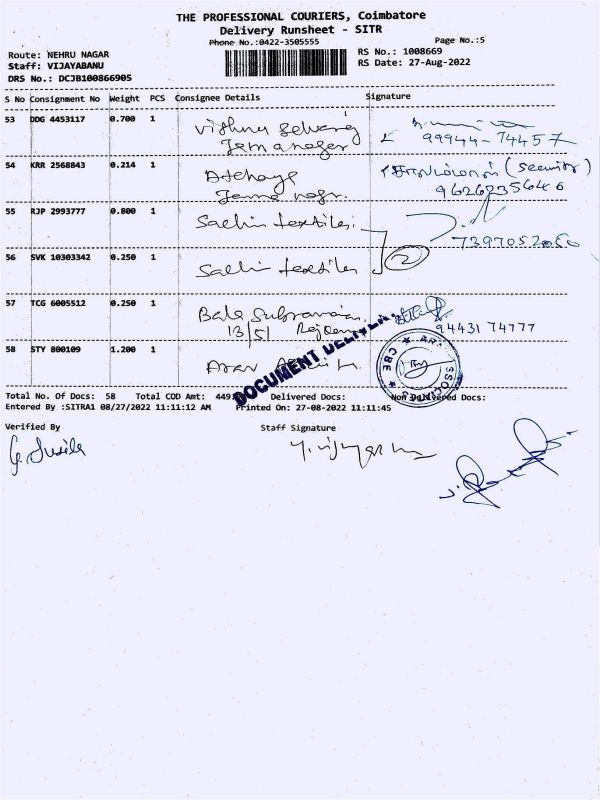 THE PROFESSIONAL COURIERS, Coimbatore
Delivery Runsheet - SITR
Phone No.:0422-3505555 Page No.:5
Route: NEHRU NAGAR RS No.: 1008669
Staff: VIJAYABANU RS Date: 27-Aug-2022
DRS No.: DCJB100866905
S No Consignment No Weight PCS Consignee Details Signature
53 DDG 4453117 0.700 1 Vishnu
99944-74457
54 KRR 2568843 0.214 1 (Security)
9626235646
55 RJP 2993777 0.800 1 Sachin textiles
7397052060
56 SVK 10303342 0.250 1 Sachin textiles 2
57 TCG 6005512 0.250 1 Bala
13/51 94431 74777
58 STY 800109 1.200 1
DOCUMENT
CBE
Total No. Of Docs: 58 Total COD Amt: Delivered Docs: Non Delivered Docs:
Entered By :SITRA1 08/27/2022 11:11:12 AM Printed On: 27-08-2022 11:11:45
Verified By Staff Signature
G. Susila